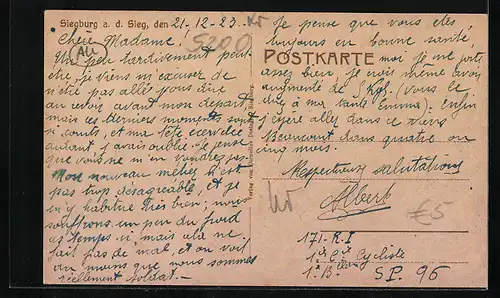 Siegburg a. d. Sieg, den 21-12-23.
Chère Madame!
Un peu tardivement peut
être, je viens m'excuser de
n'être pas allé vous dire
au revoir avant mon départ
mais ces derniers moments sont
si courts, et ma tête
autant j'avais oublié. Je pense
que vous ne m'en voudrez pas
Mon nouveau métier n'est
pas trop désagréable, et je
m'y habitue très bien; nous
souffrons un peu du froid
ces temps-ci mais cela ne
fait pas de mal, et on voit
au moins que nous sommes
réellement soldat.-
POSTKARTE
Je pense que vous êtes
toujours en bonne santé,
moi je me porte
assez bien, je crois même avoir
augmenté de 5 Kgs. (vous le
dire à ma tante Emma). Enfin
j'espère aller dans ce vieux
Beaumont dans quatre ou
cinq mois.
Respectueuses salutations
Albert
171-R.I
1re Cie Cycliste
1r B
S.P. 96
£5